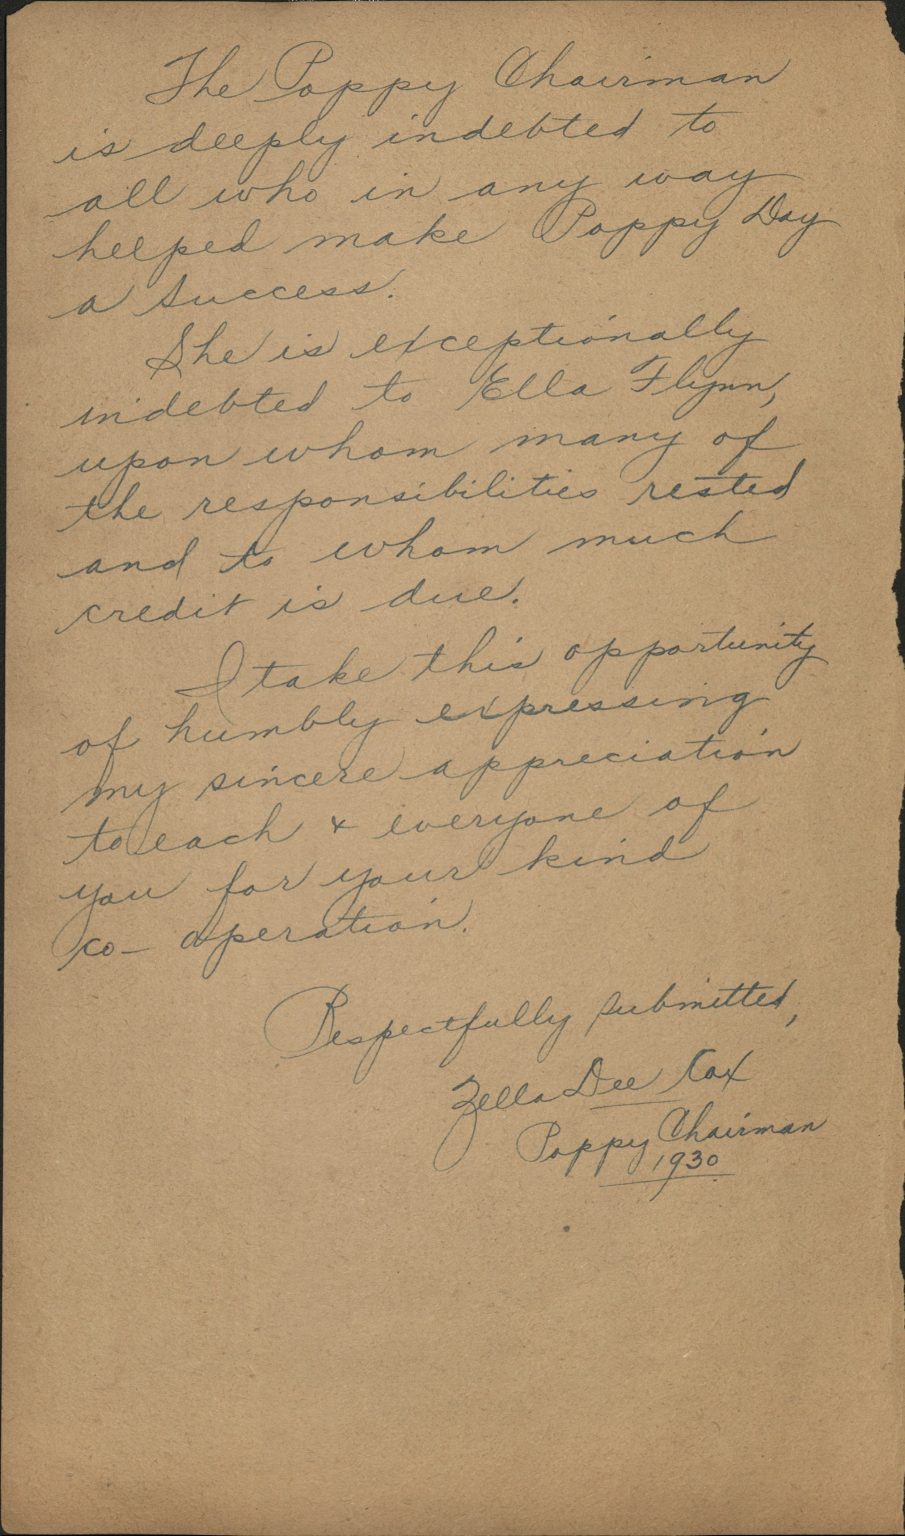 The Poppy Chairman
is deeply indebted to
all who in any way
helped make Poppy Day
a success.
She is exceptionally
indebted to Ella Flynn,
upon whom many of
the responsibilities rested
and to whom much
credit is due.
I take this opportunity
of humbly expressing
my sincere appreciation
to each & everyone of
you for your kind
co-operation.
Respectfully submitted,
Zella Dee Cox
Poppy Chairman
1930